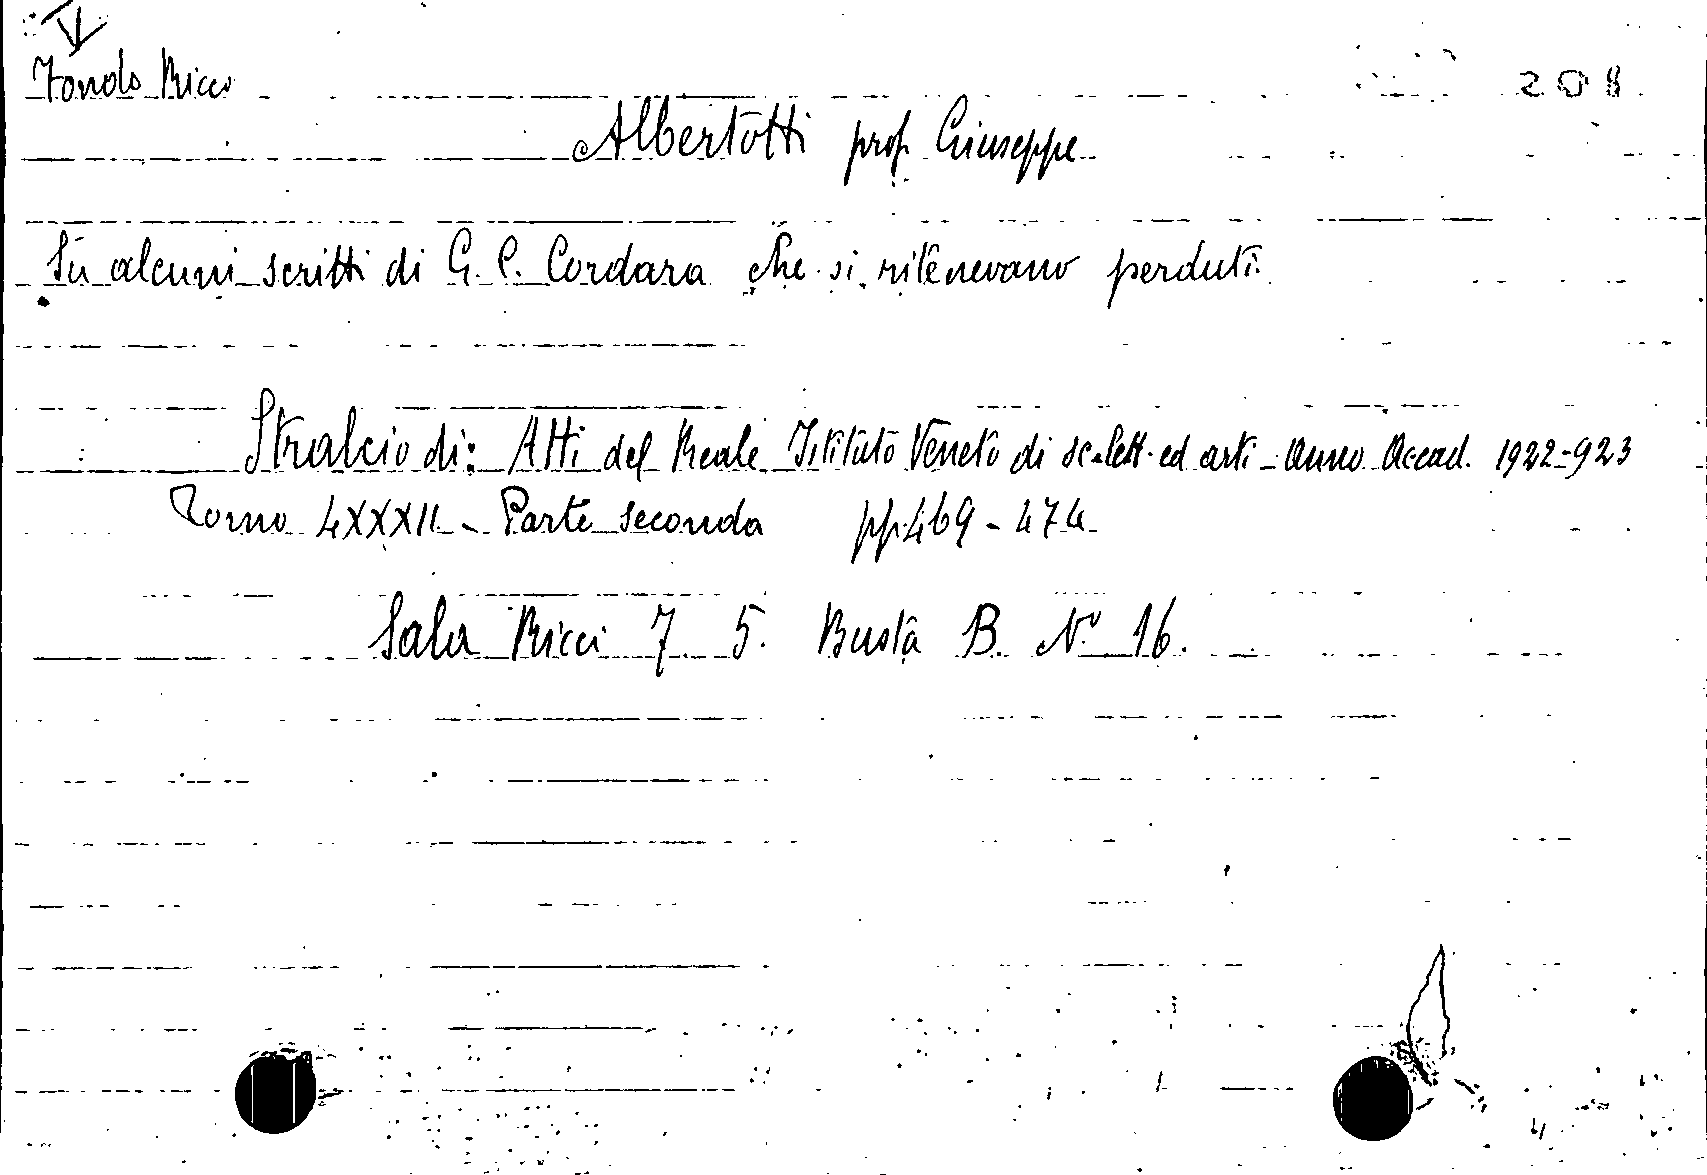 Fondo Ricci
208
Albertotti prof. Giuseppe
Su alcuni scritti di G. C. Cordara che si ritenevano perduti.
Stralcio di: Atti del Reale Istituto Veneto di sc. lett. ed arti - Anno Accad. 1922-923
Tomo LXXXII - Parte seconda pp. 469 - 474
Sala Ricci 7 5. Busta B. N° 16.